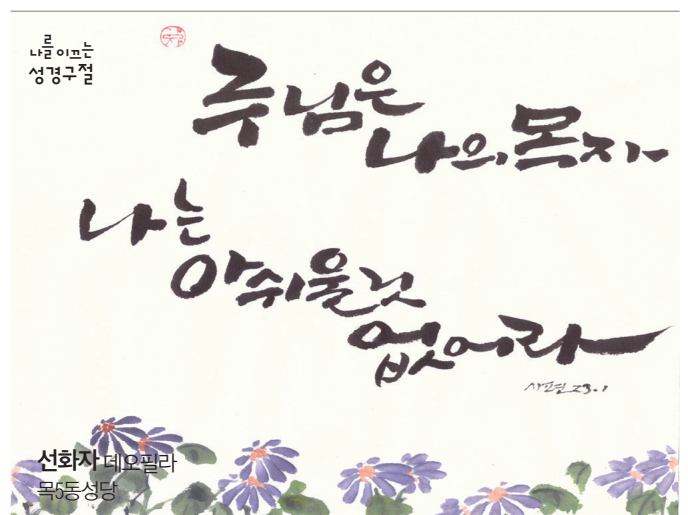 나를 이끄는
성경구절
주님은
나의 목자
나는
아쉬울 것
없어라
시편 23. 1
선화자 데오필라
목5동성당